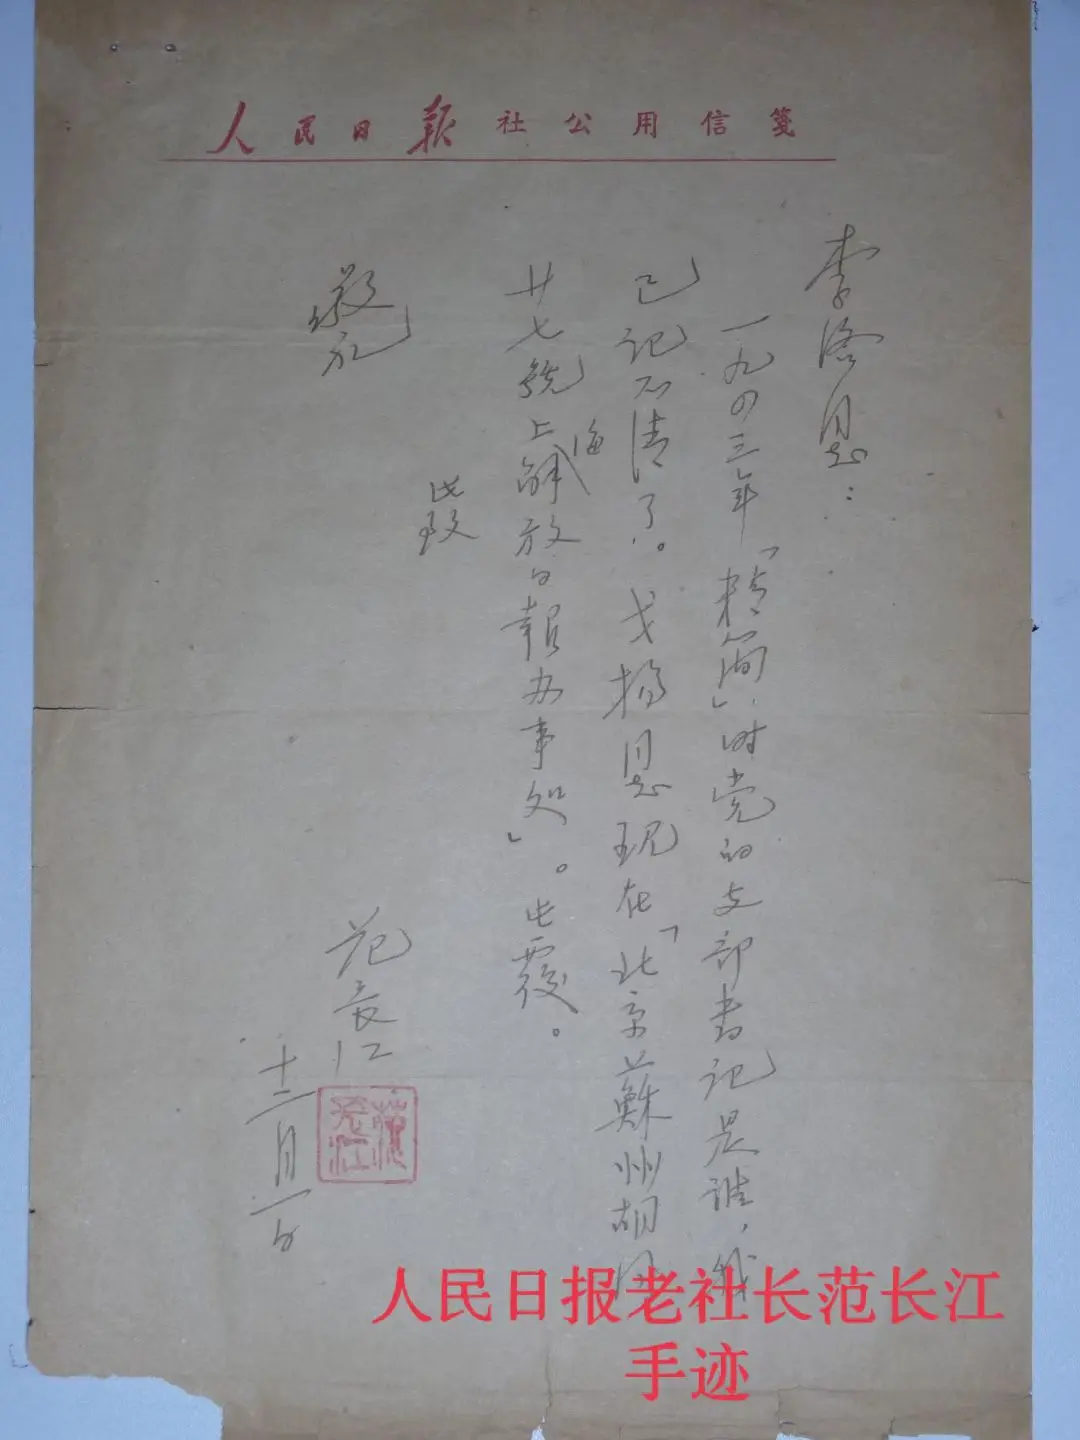 人民日报社公用信箋
李洛同志：
一九四三年「精简」时党的支部書记是谁，我
已记不清了。戈扬同志现在「北京蘇州胡同
廿七號上海解放日報办事処」。此覆。
此致
敬礼
范長江
十二月一日
范長江
人民日报老社长范长江
手迹